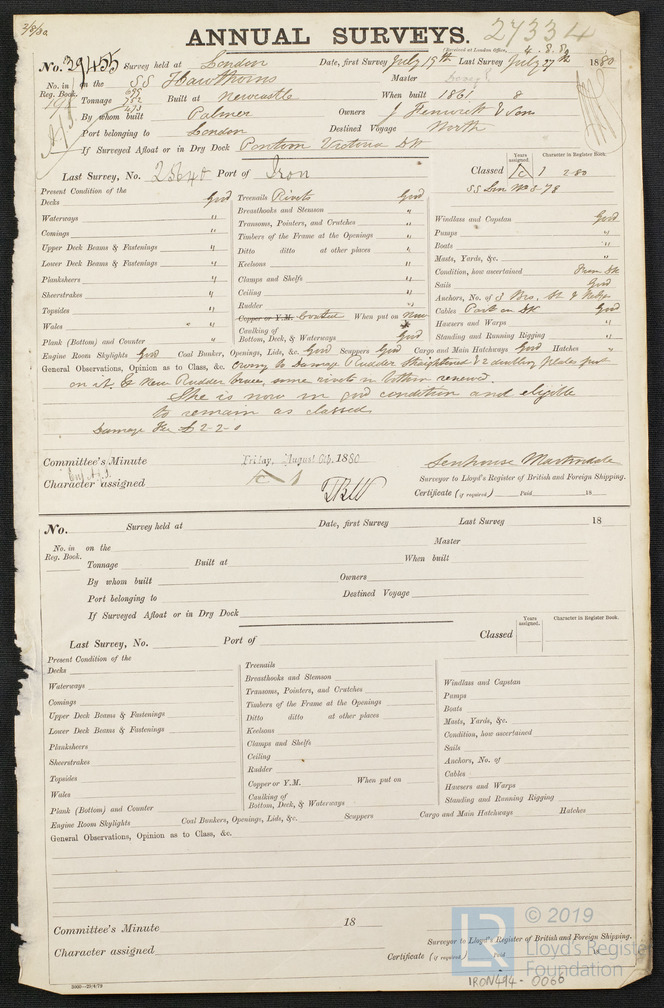 2/8/80
ANNUAL SURVEYS. 27334
(Received at London Office, 4.8.80
No. 39455 Survey held at London Date, first Survey July 19th Last Survey July 27th 1880
No. in Reg. Book. on the SS Hawthorns Master
Tonnage Built at Newcastle When built 1861 8
By whom built Palmer Owners J Fenwick & Son
Port belonging to London Destined Voyage North
If Surveyed Afloat or in Dry Dock Pontoon Victoria Dk
Last Survey, No. Port of Iron Classed Years assigned. Character in Register Book.
2-80
SS Lon No 3-78
Present Condition of the
Decks Good
Waterways "
Comings "
Upper Deck Beams & Fastenings "
Lower Deck Beams & Fastenings "
Planksheers "
Sheerstrakes "
Topsides "
Wales " "
Plank (Bottom) and Counter "
Treenails Rivets Good
Breasthooks and Stemson "
Transoms, Pointers, and Crutches "
Timbers of the Frame at the Openings "
Ditto ditto at other places "
Keelsons "
Clamps and Shelfs "
Ceiling "
Rudder "
Copper or Y.M. Coated When put on Now
Caulking of Bottom, Deck, & Waterways Good
Windlass and Capstan Good
Pumps "
Boats "
Masts, Yards, &c. "
Condition, how ascertained From Dk
Sails Good
Anchors, No. of 3 Brs, St & Kedge
Cables Part on Dk Good
Hawsers and Warps "
Standing and Running Rigging "
Engine Room Skylights Good Coal Bunker, Openings, Lids, &c. Good Scuppers Good Cargo and Main Hatchways Good Hatches "
General Observations, Opinion as to Class, &c. Owing to Damage Rudder straightened & 2 doubling plates put
on it. & New Rudder Brace, some rivets in bottom renewed.
She is now in good condition and eligible
to remain as classed
Damage Fee £2-2-0
Committee's Minute Friday, August 6th, 1880
Character assigned
Senhouse Martindale
Surveyor to Lloyd's Register of British and Foreign Shipping.
Certificate (if required) Paid 18
No. Survey held at Date, first Survey Last Survey 18
No. in Reg. Book. on the Master
Tonnage Built at When built
By whom built Owners
Port belonging to Destined Voyage
If Surveyed Afloat or in Dry Dock
Last Survey, No. Port of Classed Years assigned. Character in Register Book.
Present Condition of the
Decks
Waterways
Comings
Upper Deck Beams & Fastenings
Lower Deck Beams & Fastenings
Planksheers
Sheerstrakes
Topsides
Wales
Plank (Bottom) and Counter
Treenails
Breasthooks and Stemson
Transoms, Pointers, and Crutches
Timbers of the Frame at the Openings
Ditto ditto at other places
Keelsons
Clamps and Shelfs
Ceiling
Rudder
Copper or Y.M. When put on
Caulking of Bottom, Deck, & Waterways
Windlass and Capstan
Pumps
Boats
Masts, Yards, &c.
Condition, how ascertained
Sails
Anchors, No. of
Cables
Hawsers and Warps
Standing and Running Rigging
Engine Room Skylights Coal Bunkers, Openings, Lids, &c. Scuppers Cargo and Main Hatchways Hatches
General Observations, Opinion as to Class, &c.
Committee's Minute 18
Character assigned
Surveyor to Lloyd's Register of British and Foreign Shipping.
Certificate (if required) Paid 18
LR © 2019
Lloyd's Register
Foundation
IRON494-0066